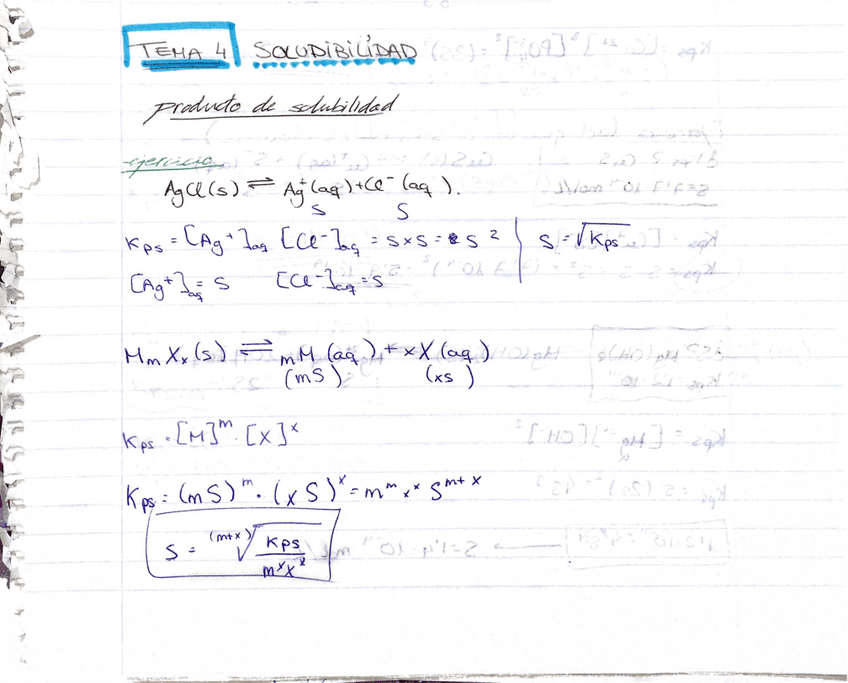 TEMA 4 SOLUDIBILIDAD
producto de solubilidad
ejercicio
AgCl(s) ⇌ Ag⁺(aq) + Cl⁻(aq).
S S
Kps = [Ag⁺]aq [Cl⁻]aq = S×S = S² | S = √Kps
[Ag⁺]aq = S [Cl⁻]aq = S
MmXx(s) ⇌ mM(aq) + xX(aq)
(mS) (xS)
Kps = [M]ᵐ · [X]ˣ
Kps = (mS)ᵐ · (xS)ˣ = mᵐ xˣ Sᵐ⁺ˣ
S = ⁽ᵐ⁺ˣ⁾√(Kps / mˣxˣ)